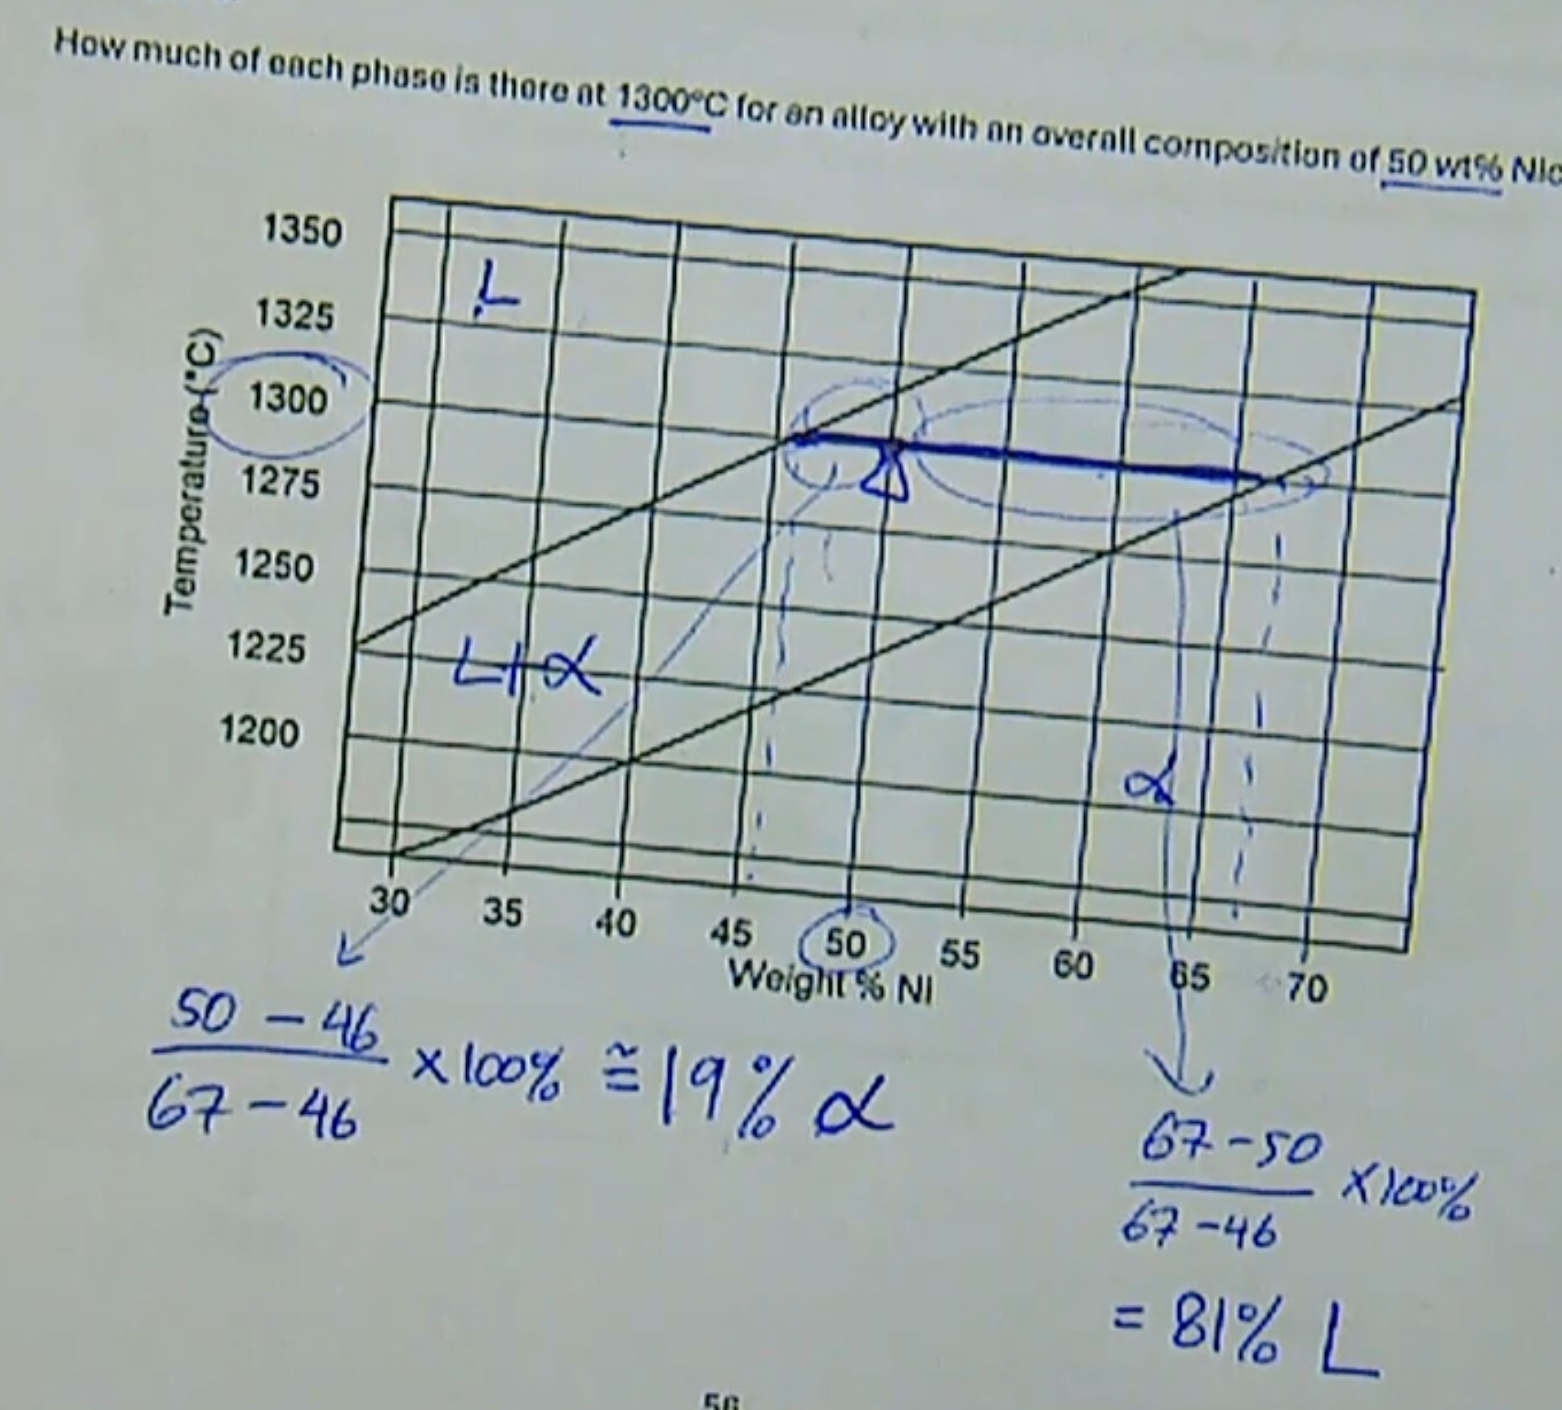 How much of each phase is there at 1300°C for an alloy with an overall composition of 50 wt%
1350
1325
1300
1275
1250
1225
1200
Temperature (°C)
L
L+α
α
30 35 40 45 50 55 60 65 70
Weight % Ni
50 - 46
67 - 46
x100% ≅ 19% α
67 - 50
67 - 46
x100%
= 81% L